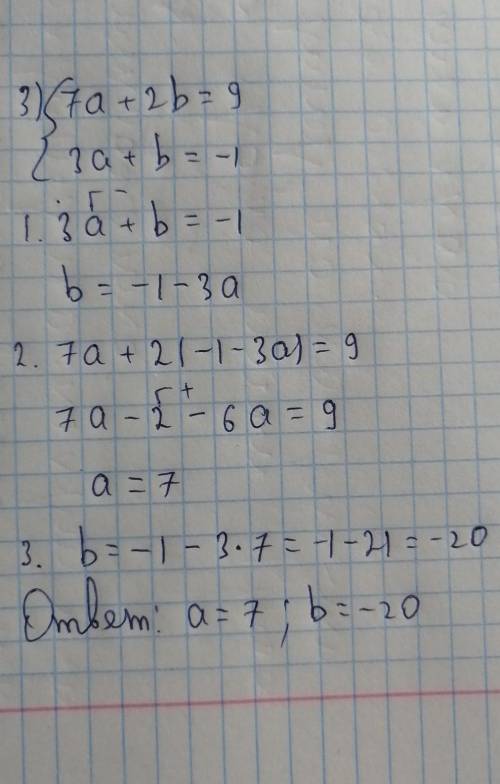 3) { 7a + 2b = 9
3a + b = -1
1. 3a + b = -1
b = -1 - 3a
2. 7a + 2(-1-3a) = 9
7a - 2 - 6a = 9
a = 7
3. b = -1 - 3·7 = -1-21 = -20
Ответ: a = 7; b = -20